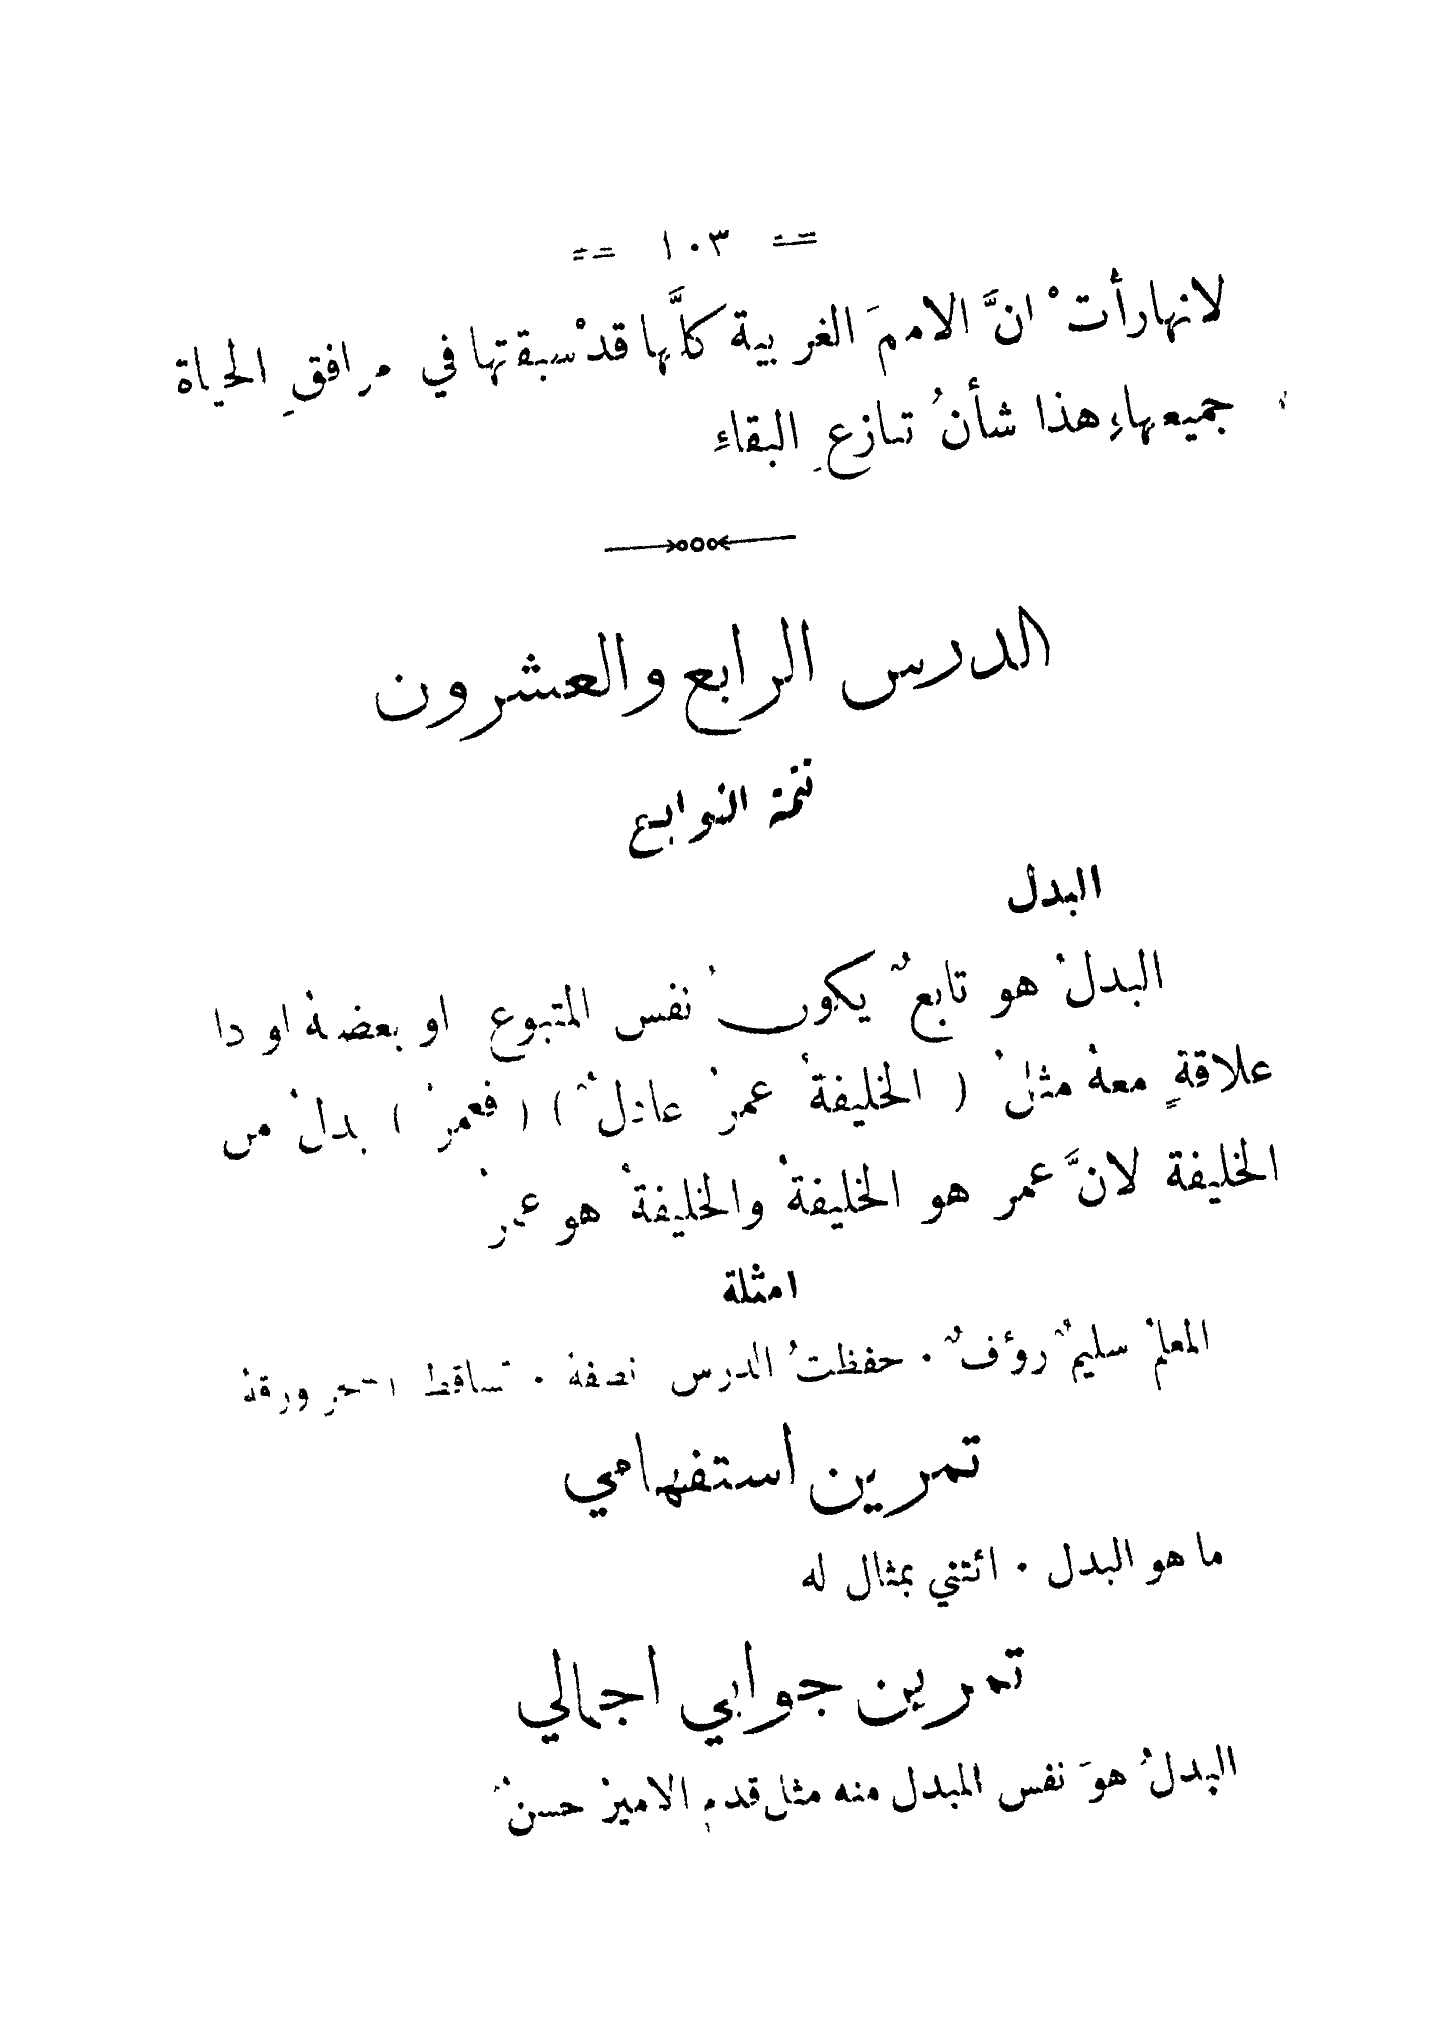 == ١٠٣ ==
لانهارأتْ انَّ الاممَ الغربية كلَّها قدْسبقتها في مرافقِ الحياة
جميعهاءِهذا شأنُ تنازعِ البقاءِ
الدرس الرابع والعشرون
تتمة التوابع
البدل
البدلُ هو تابعٌ يكونُ نفس المتبوع او بعضهُ او دا
علاقةٍ معهُ مثلُ ( الخليفةُ عمرُ عادلٌ ) ( فعمرُ ) بدلُ من
الخليفة لانَّ عمر هو الخليفةُ والخليفةُ هو عمرُ
امثلة
المعلمُ سليمٌ روؤفٌ . حفظتُ الدرس نصفهُ . تساقط ورقهُ
تمرين استفهامي
ما هو البدل . ائتني بمثال له
تمرين جوابي اجمالي
البدلُ هوَ نفس المبدل منه مثل قدم الاميرُ حسنٌ